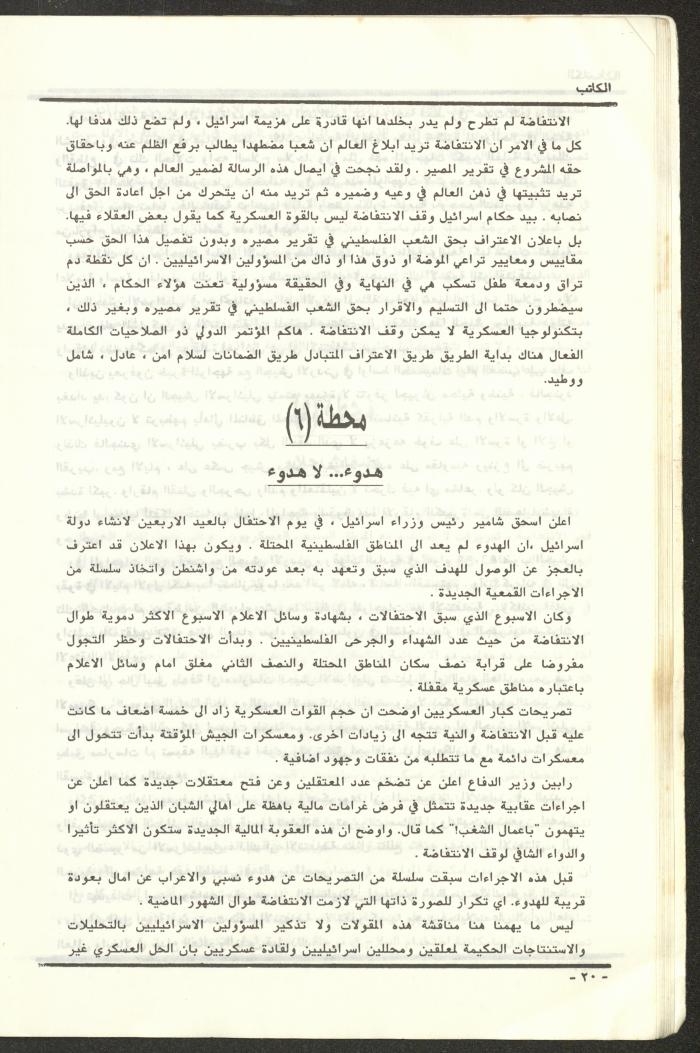 الكاتب
الانتفاضة لم تطرح ولم يدر بخلدها انها قادرة على هزيمة اسرائيل ، ولم تضع ذلك هدفا لها.
كل ما في الامر ان الانتفاضة تريد ابلاغ العالم ان شعبا مضطهدا يطالب برفع الظلم عنه وباحقاق
حقه المشروع في تقرير المصير . ولقد نجحت في ايصال هذه الرسالة لضمير العالم ، وهي بالمواصلة
تريد تثبيتها في ذهن العالم في وعيه وضميره ثم تريد منه ان يتحرك من اجل اعادة الحق الى
نصابه . بيد حكام اسرائيل وقف الانتفاضة ليس بالقوة العسكرية كما يقول بعض العقلاء فيها.
بل باعلان الاعتراف بحق الشعب الفلسطيني في تقرير مصيره وبدون تفصيل هذا الحق حسب
مقاييس ومعايير تراعي الموضة او ذوق هذا او ذاك من المسؤولين الاسرائيليين . ان كل نقطة دم
تراق ودمعة طفل تسكب هي في النهاية وفي الحقيقة مسؤولية تعنت هؤلاء الحكام ، الذين
سيضطرون حتما الى التسليم والاقرار بحق الشعب الفسلطيني في تقرير مصيره وبغير ذلك ،
بتكنولوجيا العسكرية لا يمكن وقف الانتفاضة . هاكم المؤتمر الدولي ذو الصلاحيات الكاملة
الفعال هناك بداية الطريق طريق الاعتراف المتبادل طريق الضمانات لسلام امن ، عادل ، شامل
ووطيد.
محطة (٦)
هدوء... لا هدوء
اعلن اسحق شامير رئيس وزراء اسرائيل ، في يوم الاحتفال بالعيد الاربعين لانشاء دولة
اسرائيل ،ان الهدوء لم يعد الى المناطق الفلسطينية المحتلة . ويكون بهذا الاعلان قد اعترف
بالعجز عن الوصول للهدف الذي سبق وتعهد به بعد عودته من واشنطن واتخاذ سلسلة من
الاجراءات القمعية الجديدة .
وكان الاسبوع الذي سبق الاحتفالات ، بشهادة وسائل الاعلام الاسبوع الاكثر دموية طوال
الانتفاضة من حيث عدد الشهداء والجرحى الفلسطينيين . وبدأت الاحتفالات وحظر التجول
مفروضا على قرابة نصف سكان المناطق المحتلة والنصف الثاني مغلق امام وسائل الاعلام
باعتباره مناطق عسكرية مقفلة .
تصريحات كبار العسكريين اوضحت ان حجم القوات العسكرية زاد الى خمسة اضعاف ما كانت
عليه قبل الانتفاضة والنية تتجه الى زيادات اخرى. ومعسكرات الجيش المؤقتة بدأت تتحول الى
معسكرات دائمة مع ما تتطلبه من نفقات وجهود اضافية .
رابين وزير الدفاع اعلن عن تضخم عدد المعتقلين وعن فتح معتقلات جديدة كما اعلن عن
اجراءات عقابية جديدة تتمثل في فرض غرامات مالية باهظة على اهالي الشبان الذين يعتقلون او
يتهمون "باعمال الشغب!" كما قال. واوضح ان هذه العقوبة المالية الجديدة ستكون الاكثر تأثيرا
والدواء الشافي لوقف الانتفاضة .
قبل هذه الاجراءات سبقت سلسلة من التصريحات عن هدوء نسبي والاعراب عن امال بعودة
قريبة للهدوء. اي تكرار للصورة ذاتها التي لازمت الانتفاضة طوال الشهور الماضية .
ليس ما يهمنا هنا مناقشة هذه المقولات ولا تذكير المسؤولين الاسرائيليين بالتحليلات
والاستنتاجات الحكيمة لمعلقين ومحللين اسرائيليين ولقادة عسكريين بان الحل العسكري غير
- ٢٠ -